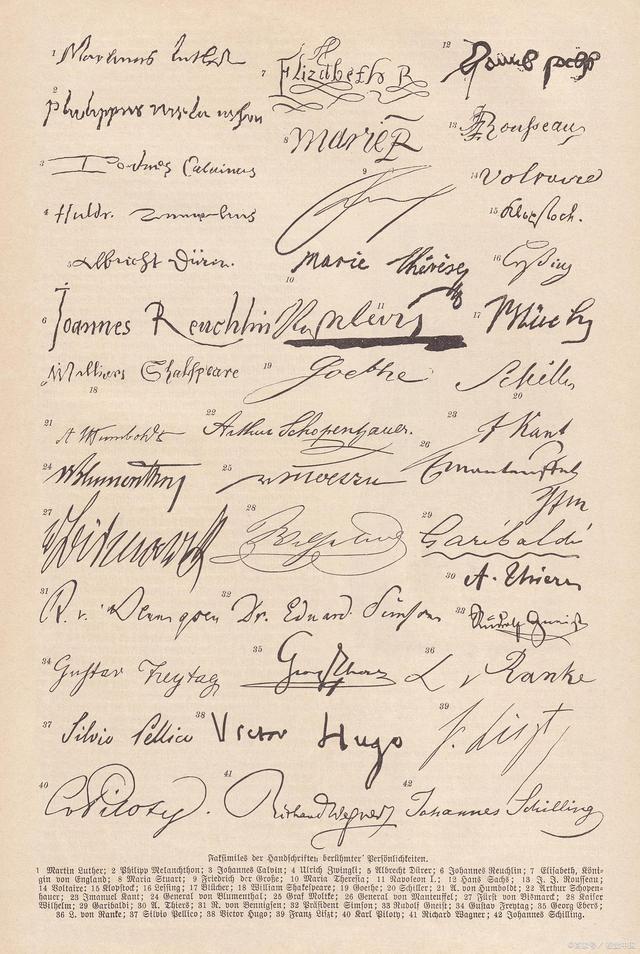 1 Martinus Luther
2 Philippus Melanchthon
3 Joannes Calvinus
4 Huldr.
5 Albrecht Dürer.
6 Joannes Reuchlin
7 Elizabeth R
8 Marie R
9
10 Marie Thérèse
11
12 Hanns Sachs
13 Rousseau
14 Voltaire
15 Klopstock.
16 Lessing
17 Blücher
William Shakspeare
18
19 Goethe
Schiller
20
21 A v Humboldt
22 Arthur Schopenhauer.
23 I Kant
24 Blumenthal
25
26 EManteuffel
27 v Bismarck
28 Wilhelm
29 Garibaldi
30 A. Thiers
31 R. v. Bennigsen
32 Dr. Eduard Simson
33 Rudolf Gneist
34 Gustav Freytag
35 Georg Ebers
36 L v Ranke
37 Silvio Pellico
38 Victor Hugo
39 F. Liszt
40 C v Piloty.
41 Richard Wagner
42 Johannes Schilling
Faksimiles der Handschriften berühmter Persönlichkeiten.
1 Martin Luther; 2 Philipp Melanchthon; 3 Johannes Calvin; 4 Ulrich Zwingli; 5 Albrecht Dürer; 6 Johannes Reuchlin; 7 Elisabeth, Köni-
gin von England; 8 Maria Stuart; 9 Friedrich der Große; 10 Maria Theresia; 11 Napoleon I.; 12 Hans Sachs; 13 J. J. Rousseau;
14 Voltaire; 15 Klopstock; 16 Lessing; 17 Blücher; 18 William Shakespeare; 19 Goethe; 20 Schiller; 21 A. von Humboldt; 22 Arthur Schopen-
hauer; 23 Imanuel Kant; 24 General von Blumenthal; 25 Graf Moltke; 26 General von Manteuffel; 27 Fürst von Bismarck; 28 Kaiser
Wilhelm; 29 Garibaldi; 30 A. Thiers; 31 R. von Bennigsen; 32 Präsident Simson; 33 Rudolf Gneist; 34 Gustav Freytag; 35 Georg Ebers;
36 L. von Ranke; 37 Silvio Pellico; 38 Victor Hugo; 39 Franz Liszt; 40 Karl Piloty; 41 Richard Wagner; 42 Johannes Schilling.